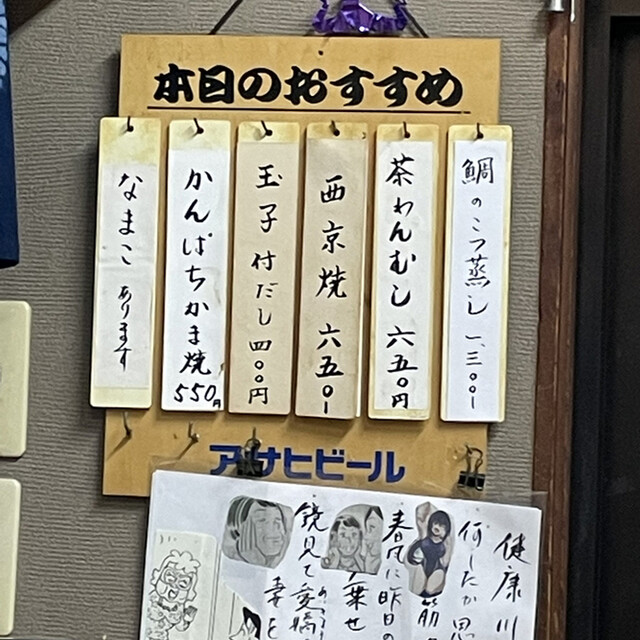 本日のおすすめ
鯛のこつ蒸し 一、三〇〇ー
茶わんむし 六五〇円
西京焼 六五〇ー
玉子付だし 四〇〇円
かんぱちかま焼 550円
なまこ あります
アサヒビール
健康川
何したか思
春風に昨日の
乗せ
鏡見て
妻を